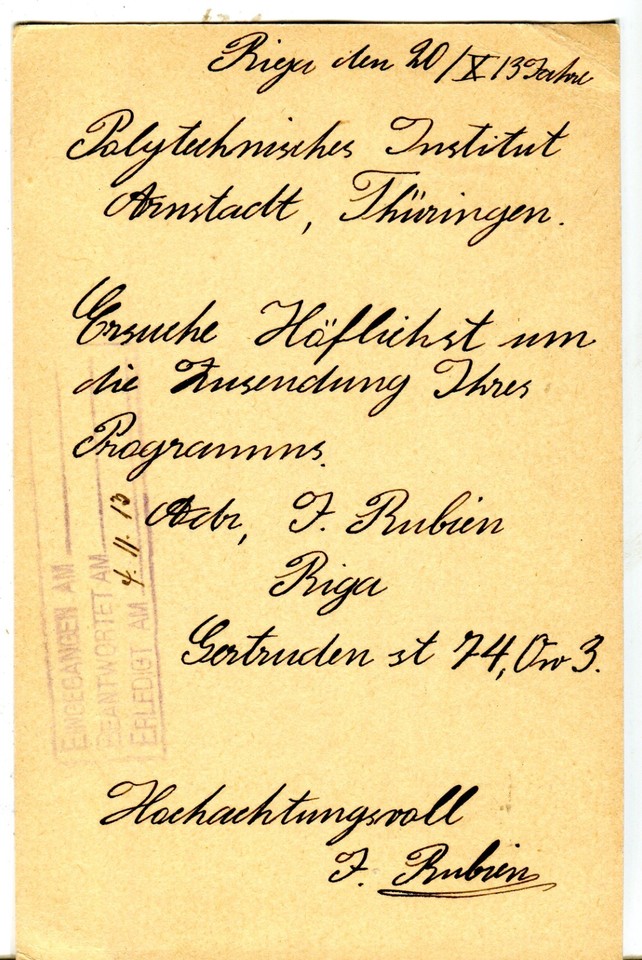 Riga den 20/X 13 Jahre
Polytechnisches Institut
Arnstadt, Thüringen.
Ersuche Höflichst um
die Zusendung Ihres
Programms.
Adr, J. Rubien
Riga
Gertruden st 74, Qw 3.
Hochachtungsvoll
J. Rubien
EINGEGANGEN AM
BEANTWORTET AM
ERLEDIGT AM 4. 11. 13